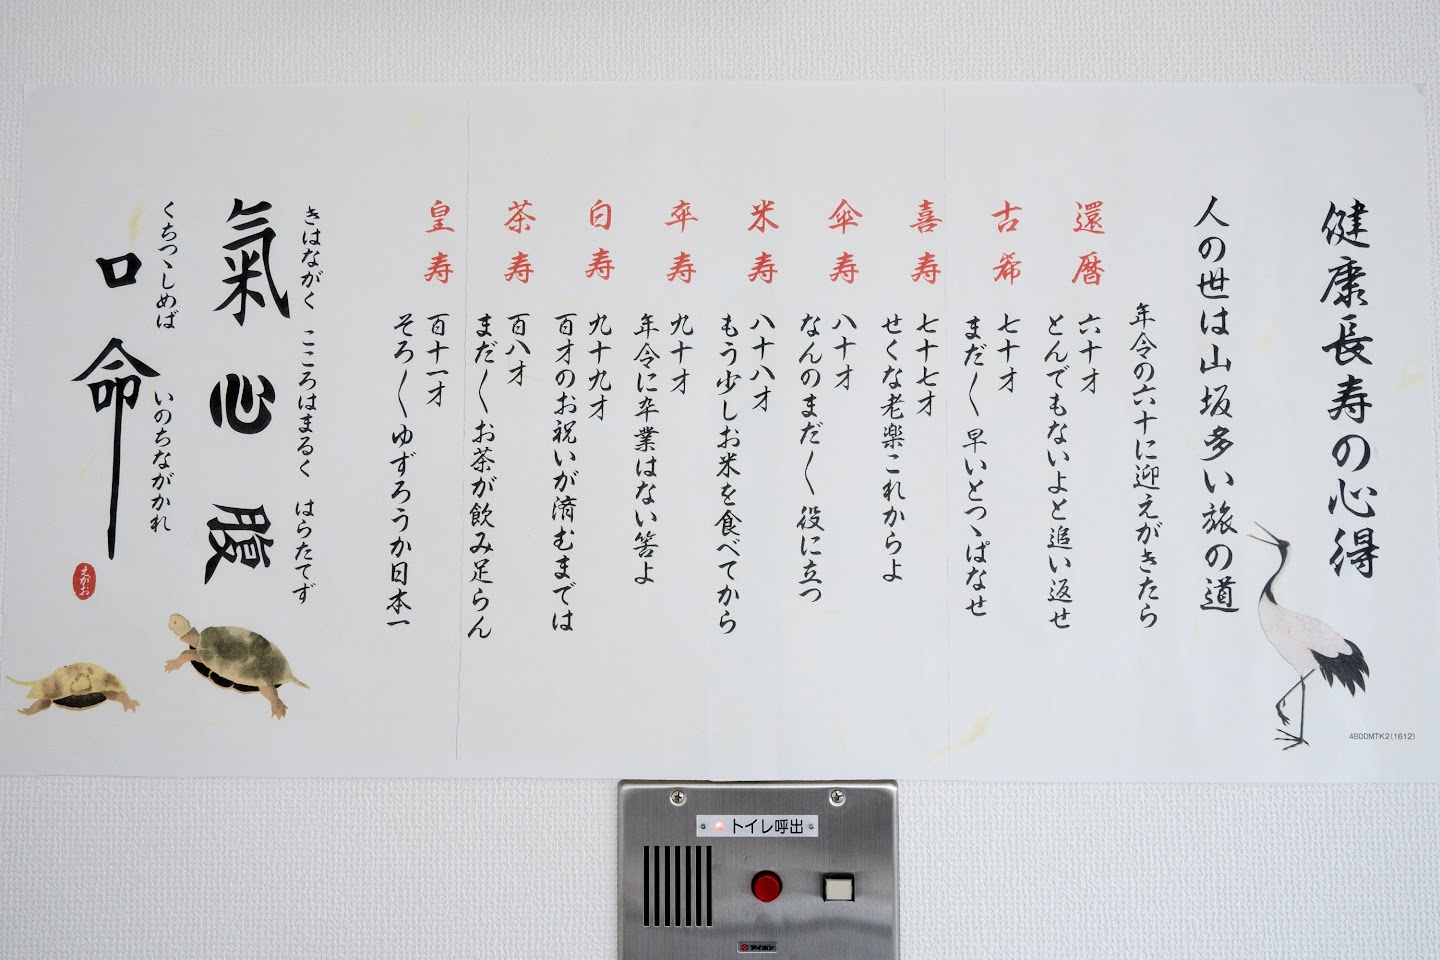 健康長寿の心得
人の世は山坂多い旅の道
年令の六十に迎えがきたら
還暦
六十才
とんでもないよと追い返せ
古希
七十才
まだ〱早いとつゝぱなせ
喜寿
七十七才
せくな老楽これからよ
傘寿
八十才
なんのまだ〱役に立つ
米寿
八十八才
もう少しお米を食べてから
卒寿
九十才
年令に卒業はない筈よ
白寿
九十九才
百才のお祝いが済むまでは
茶寿
百八才
まだ〱お茶が飲み足らん
皇寿
百十一才
そろ〱ゆずろうか日本一
きはながく こころはまるく はらたてず
氣心腹
くちつゝしめば いのちながかれ
口命
えがお
4BDDMTK2(1612)
トイレ呼出
アイホン